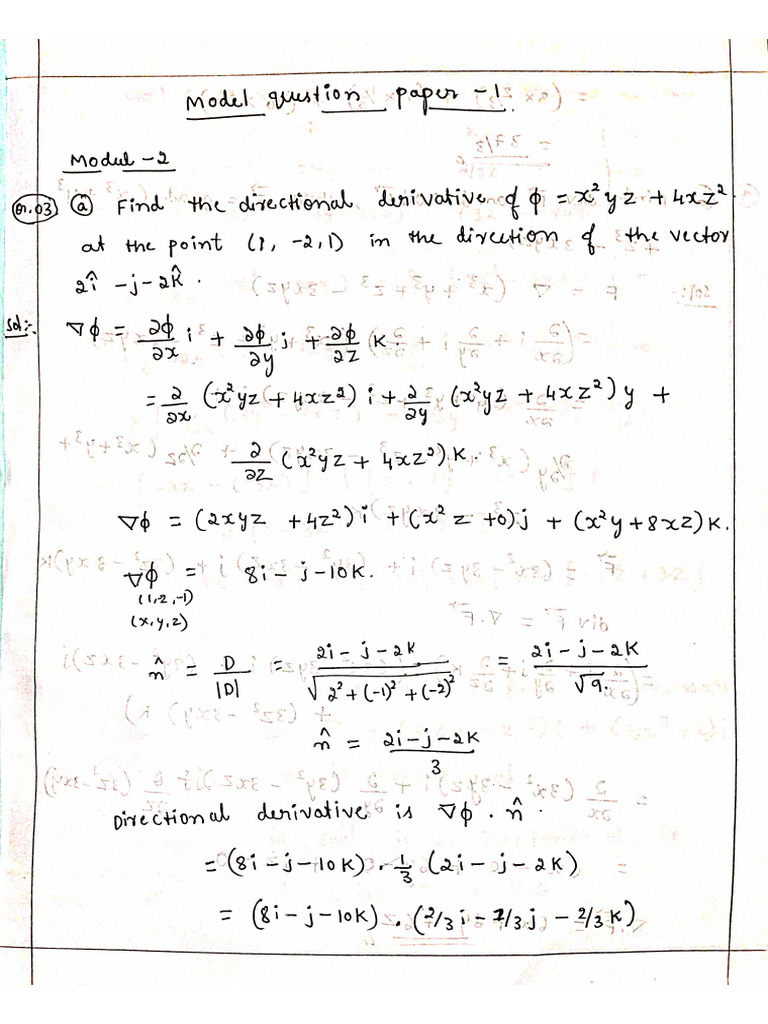 Model question paper -1.
Modul -2
Q.03) ⓐ Find the directional derivative of ϕ = x²yz + 4xz²
at the point (1, -2, 1) in the direction of the vector
2î -j - 2k̂.
Sol:- ∇ϕ = ∂ϕ/∂x i + ∂ϕ/∂y j + ∂ϕ/∂z k
= ∂/∂x (x²yz + 4xz²) i + ∂/∂y (x²yz + 4xz²) y +
∂/∂z (x²yz + 4xz²) k.
∇ϕ = (2xyz + 4z²) i + (x²z + 0) j + (x²y + 8xz) k.
∇ϕ = 8i - j - 10k.
(1, -2, -1)
(x, y, z)
n̂ = D/|D| = 2i - j - 2k / √2² + (-1)² + (-2)² = 2i - j - 2k / √9.
n̂ = 2i - j - 2k / 3
Directional derivative is ∇ϕ . n̂.
= (8i - j - 10k) . 1/3 (2i - j - 2k)
= (8i - j - 10k) . (2/3 i - 1/3 j - 2/3 k)